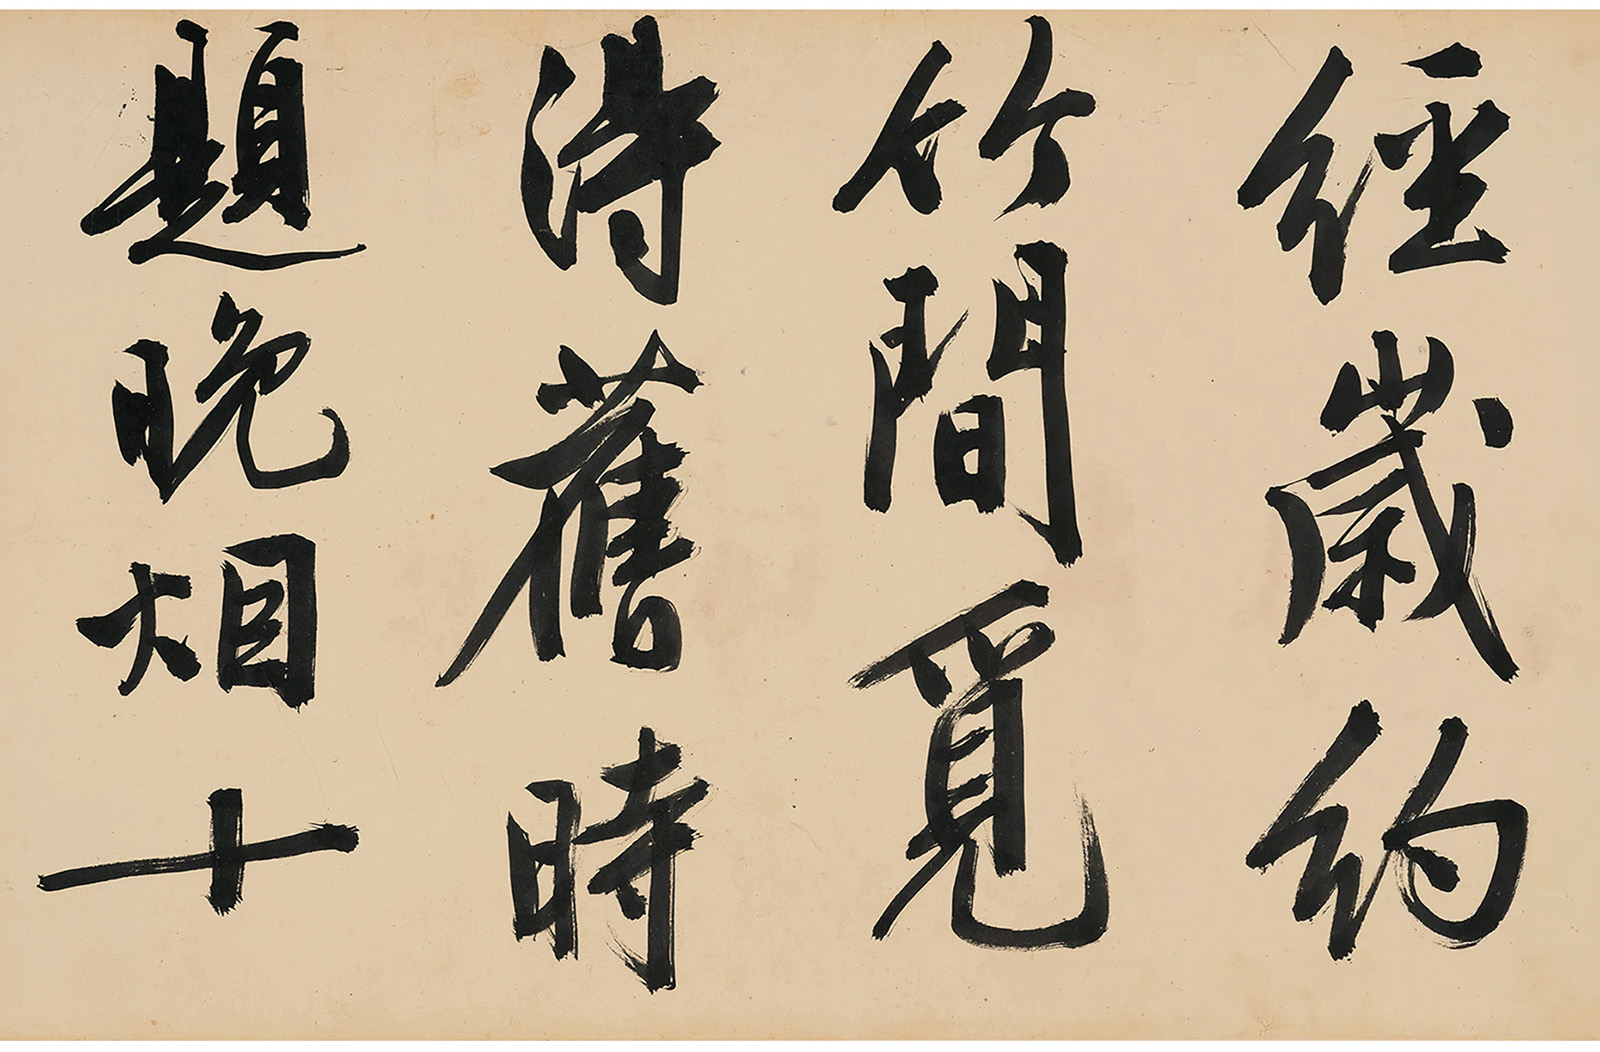 經歲約
竹間覓
得舊時
題晚烟十